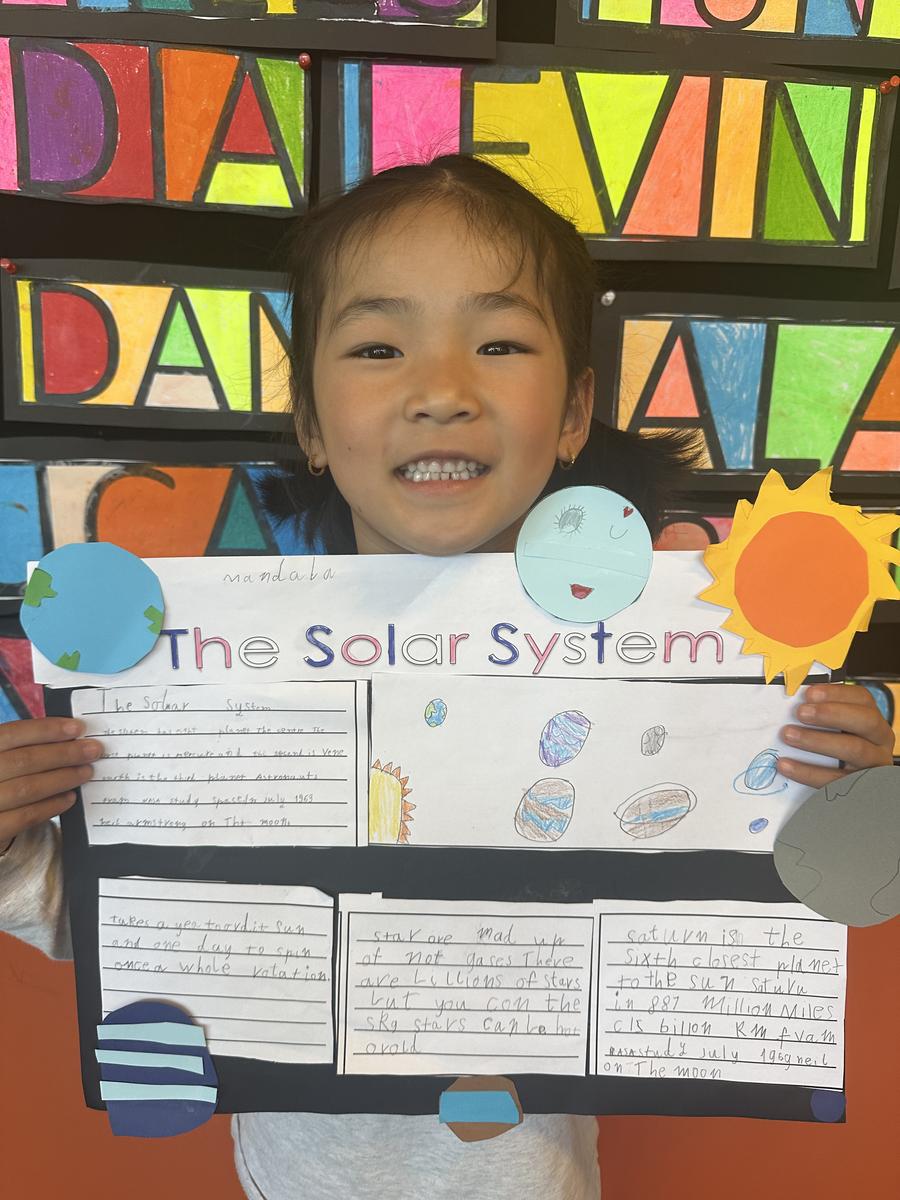 DA
EVIN
DAN
ALA
CA
mandala
The Solar System
The Soluar System
planet The centre The
planet is mercure and the second is Vene
earth is the third planet Astronauts
study july 1963
neil armstrong on The moon
takes a yea to ordit sun
and one day to spin
once a whole rotation.
star are mad up
of not gases There
are Lillions of stars
but you con the
sky stars can be hot
orold
saturn is the
sixth closest planet
to the sun saturu
in 887 Million Miles
c15 billon Km fvam
NASA study july 1969 neil
on The moon